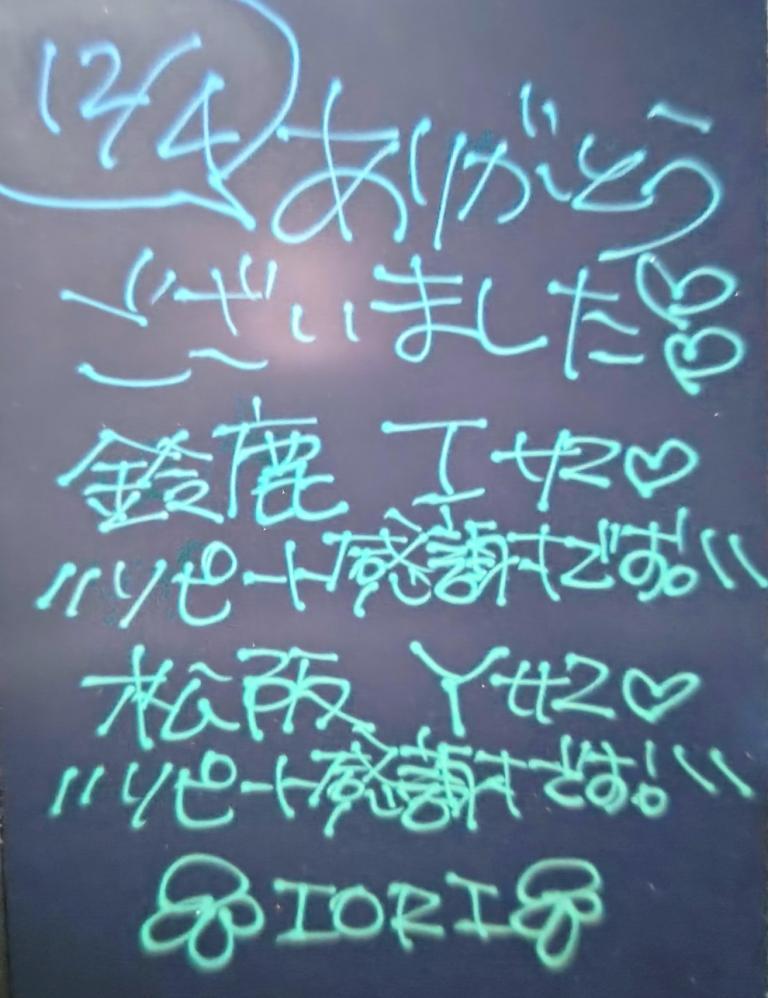 12/4
ありがとう
ございました♡♡
鈴鹿 I サマ♡
〃リピート感謝です!〃
松阪 Yサマ♡
〃リピート感謝です!〃
IORI